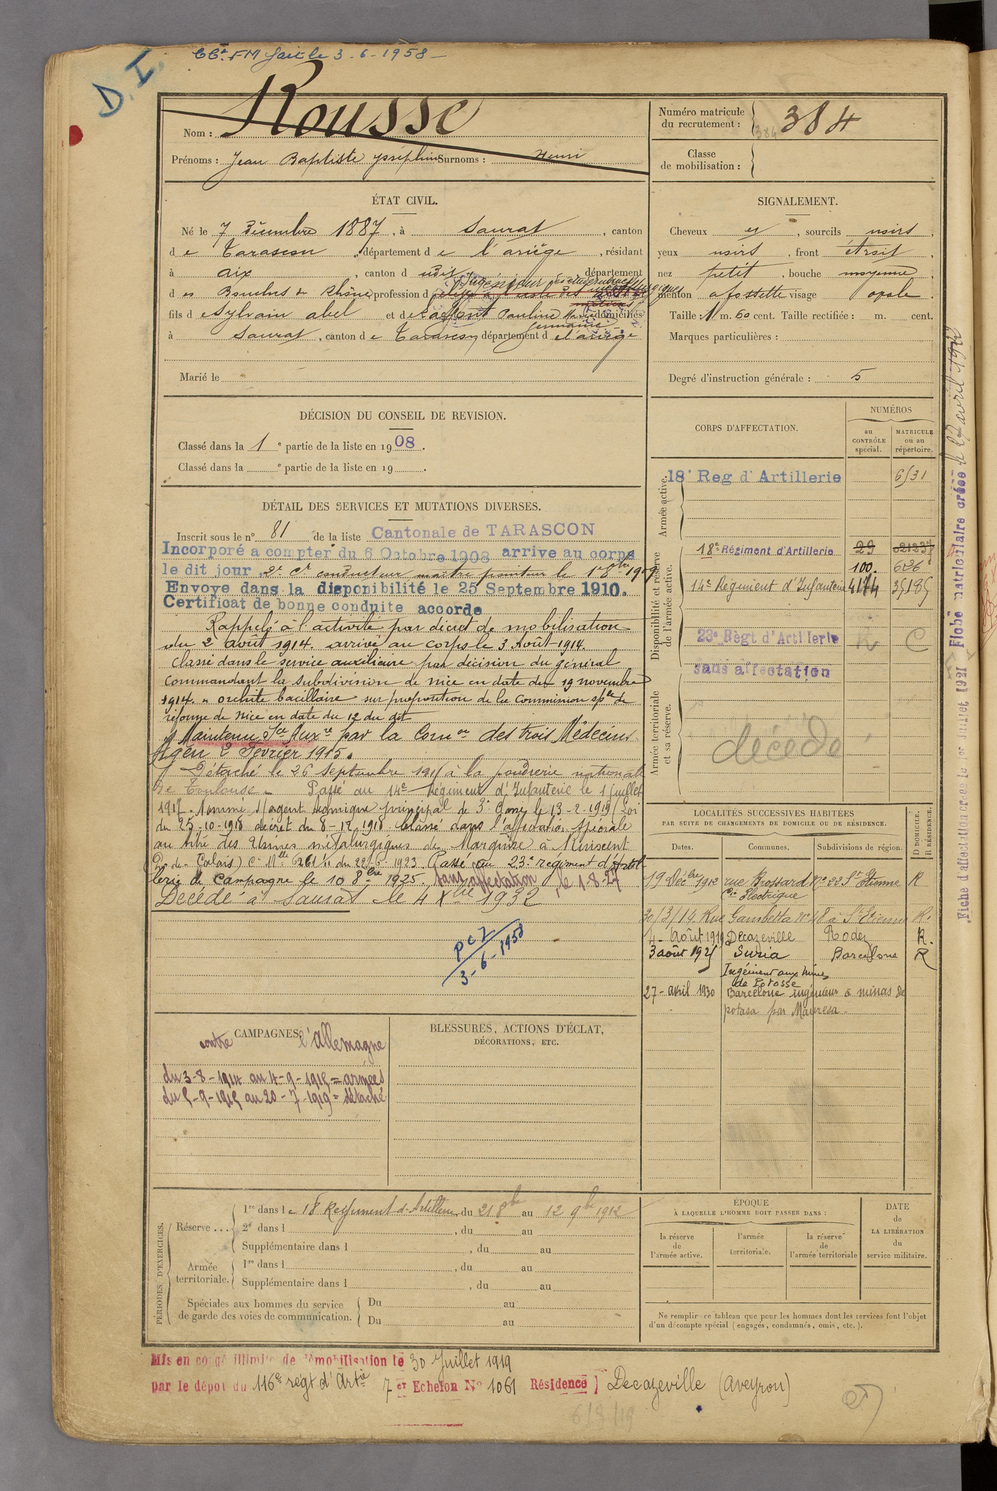 Cct. FM fait le 3-6-1958
D. I.
Nom : Rousse
Prénoms : Jean Baptiste Joséphin Surnoms : Henri
Numéro matricule du recrutement : 384
Classe de mobilisation :
ÉTAT CIVIL.
Né le 7 Décembre 1887, à Saurat, canton
de Tarascon, département de l'ariège, résidant
à aix, canton d udit, département
des Bouches du Rhône, profession d
fils de Sylvain abel et de Pauline domiciliés
à Saurat, canton de Tarascon, département de l'ariège
Marié le
SIGNALEMENT.
Cheveux et, sourcils noirs,
yeux noirs, front étroit,
nez petit, bouche moyenne,
menton a fossette visage ovale.
Taille 1 m. 60 cent. Taille rectifiée : m. cent.
Marques particulières :
Degré d'instruction générale : 5
DÉCISION DU CONSEIL DE REVISION.
Classé dans la 1e partie de la liste en 1908.
Classé dans la e partie de la liste en 19 .
DÉTAIL DES SERVICES ET MUTATIONS DIVERSES.
Inscrit sous le n° 81 de la liste Cantonale de TARASCON
Incorporé a compter du 6 Octobre 1908 arrive au corps
le dit jour 2e Cr conducteur maître pointeur le 1er 8bre 1909
Envoyé dans la disponibilité le 25 Septembre 1910.
Certificat de bonne conduite accordé
Rappelé à l'activité par décret de mobilisation
du 2 août 1914. arrivé au corps le 3 Août 1914.
Classé dans le service auxiliaire par décision du général
commandant la subdivision de Nice en date du 19 novembre
1914. « orchite bacillaire » sur proposition de la commission sple de
réforme de Nice en date du 12 du dit
Maintenu Sce Auxre par la Comon des trois Médecins
Agen 2 Février 1915.
Détaché le 26 septembre 1915 à la poudrerie nationale
de Toulouse - Passé au 14e Régiment d'Infanterie le 1 juillet
1917. Nommé 3e Classe le 13-2-1919 (Loi
du 25-10-1918 décret du 8-12-1918. Classé dans l'affectation spéciale
au titre des Usines métallurgiques de Marquise à Rinxent
(Pas de Calais) du 22-6-1923. Passé au 23e régiment d'Artil
lerie de Campagne le 10 8bre 1925. Sans affectation le 1.8.27
Décédé à Saurat le 4 Xbre 1932
3-6-1958
CORPS D'AFFECTATION.
NUMÉROS
au CONTRÔLE spécial.
MATRICULE ou au répertoire.
Armée active.
18e Reg d'Artillerie
Disponibilité et réserve de l'armée active.
18e Régiment d'Artillerie 29
100.
14e Régiment d'Infanterie 4174
23e Régt d'Artillerie C
sans affectation
Armée territoriale et sa réserve.
décédé
LOCALITÉS SUCCESSIVES HABITÉES
PAR SUITE DE CHANGEMENTS DE DOMICILE OU DE RÉSIDENCE.
Dates. Communes. Subdivisions de région. D DOMICILE. R RÉSIDENCE.
19 Décbre 1912 rue Brossard No 22 St Etienne R
Cie Electrique
30/3/14. Rue Gambetta No 48 à St Etienne R.
4- Août 1919 Decazeville Rodez R.
3 août 1925 Suria Barcelone R
Ingénieur aux mines de Potasse
27-avril 1930 Barcelone ingénieur a minas de
potasa par Manresa
CAMPAGNES contre l'Allemagne
du 3-8-1914 au 4-9-1915 = armées
du 5-9-1915 au 20-7-1919 = détaché
BLESSURES, ACTIONS D'ÉCLAT,
DÉCORATIONS, ETC.
PÉRIODES D'EXERCICES.
Réserve... 1re dans le 18 Régiment d'Artillerie, du 21 8bre au 12 9bre 1912
2e dans l , du au
Supplémentaire dans l , du au
Armée territoriale. 1re dans l , du au
Supplémentaire dans l , du au
Spéciales aux hommes du service de garde des voies de communication. Du au
Du au
ÉPOQUE
À LAQUELLE L'HOMME DOIT PASSER DANS :
la réserve de l'armée active.
l'armée territoriale.
la réserve de l'armée territoriale
DATE de LA LIBÉRATION du service militaire.
Ne remplir ce tableau que pour les hommes dont les services font l'objet
d'un décompte spécial (engagés, condamnés, omis, etc.).
Mis en congé illimité de démobilisation le 30 Juillet 1919
par le dépôt du 116e régt d'Artie 7er Echelon No 1061 Résidence } Decazeville (Aveyron)
6/8/19